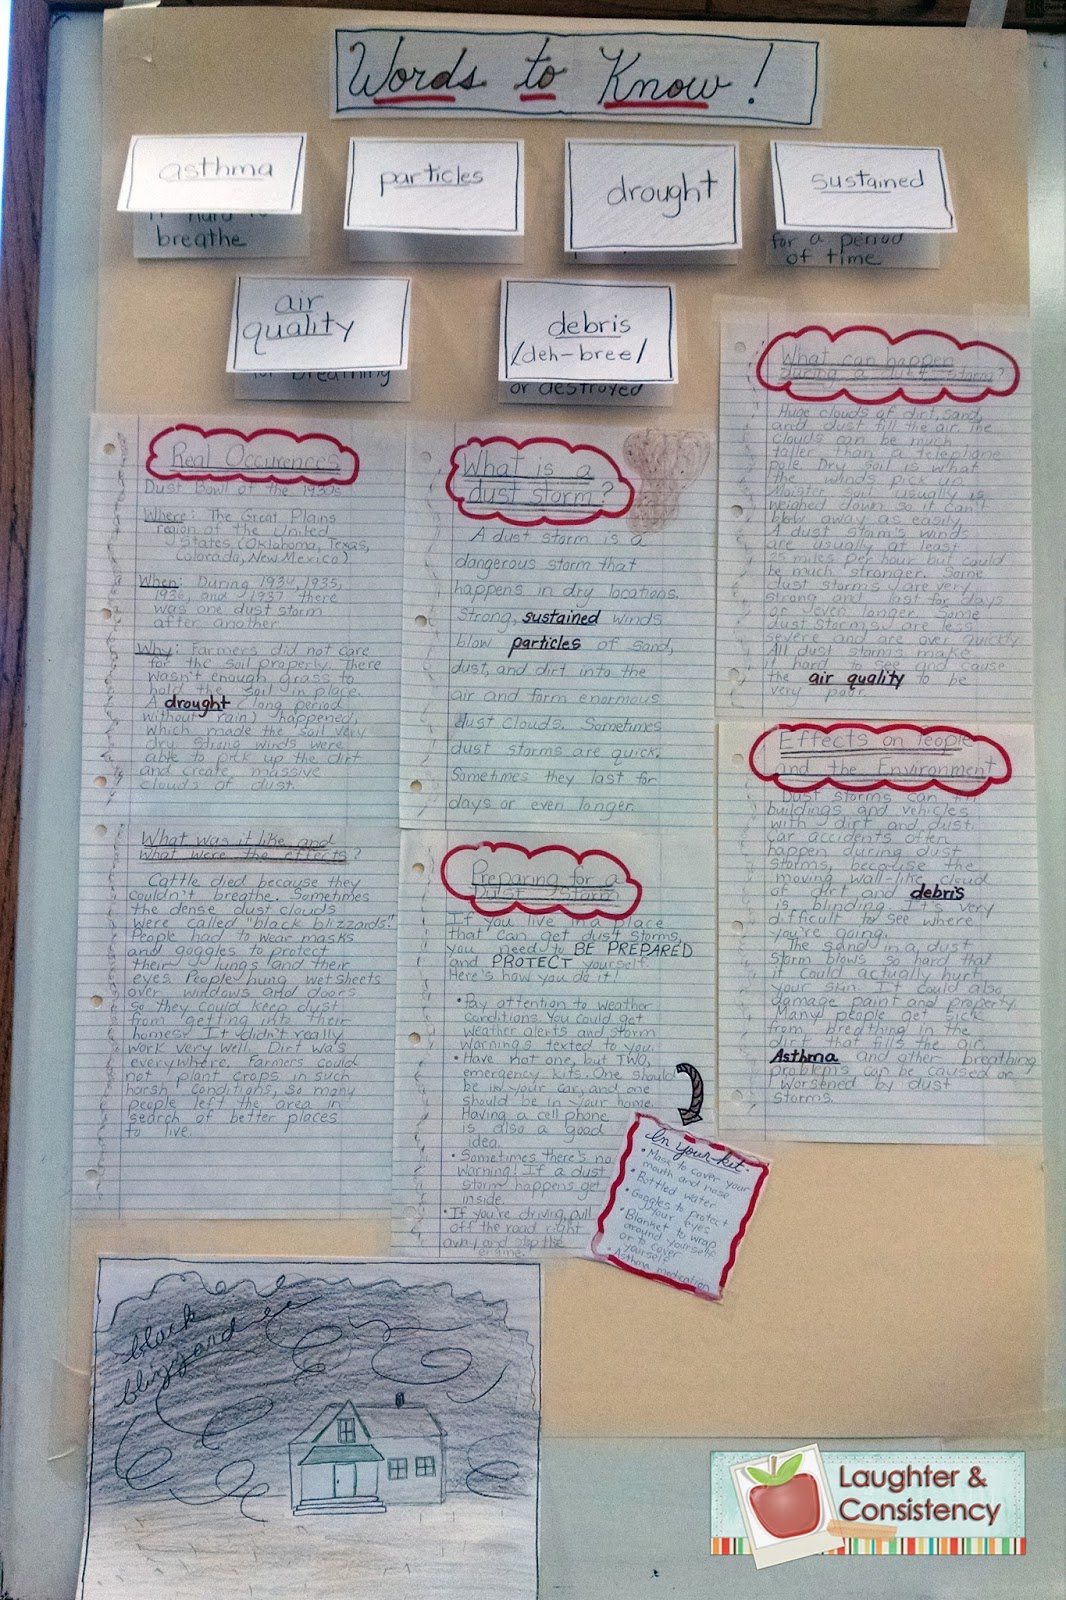 Words to Know!
asthma
it hard to
breathe
particles
drought
sustained
for a period
of time
air
quality
for breathing
debris
/deh-bree/
or destroyed
Real Occurences
Dust Bowl of the 1930s
Where: The Great Plains
region of the United
States. (Oklahoma, Texas,
Colorado, New Mexico)
When: During 1934, 1935,
1936, and 1937 there
was one dust storm
after another
Why: Farmers did not care
for the soil properly. There
wasn't enough grass to
hold the soil in place.
A drought (long period
without rain) happened,
which made the soil very
dry. Strong winds were
able to pick up the dirt
and create massive
clouds of dust.
What was it like, and
what were the effects?
Cattle died because they
couldn't breathe. Sometimes
the dense dust clouds
were called "black blizzards."
People had to wear masks
and goggles to protect
their lungs and their
eyes. People hung wet sheets
over windows and doors
so they could keep dust
from getting into their
homes. It didn't really
work very well. Dirt was
everywhere. Farmers could
not plant crops in such
harsh conditions, so many
people left the area in
search of better places
to live.
What is a
dust storm?
A dust storm is a
dangerous storm that
happens in dry locations.
Strong, sustained winds
blow particles of sand,
dust, and dirt into the
air and form enormous
dust clouds. Sometimes
dust storms are quick.
Sometimes they last for
days or even longer.
Preparing for a
Dust Storm
If you live in a place
that can get dust storms,
you need to BE PREPARED
and PROTECT yourself.
Here's how you do it!
• Pay attention to weather
conditions. You could get
weather alerts and storm
warnings texted to you.
• Have not one, but TWO,
emergency kits. One should
be in your car, and one
should be in your home.
Having a cell phone
is also a good
idea.
• Sometimes there's no
warning! If a dust
storm happens get
inside.
• If you're driving, pull
off the road right
away and stop the
engine.
In your kit:
• Mask to cover your
mouth and nose
• Bottled water
• Goggles to protect
your eyes
• Blanket to wrap
around yourself
or to cover
yourself
• Asthma medication
What can happen
during a dust storm?
Huge clouds of dirt, sand,
and dust fill the air. The
clouds can be much
taller than a telephone
pole. Dry soil is what
the winds pick up.
Moist soil usually is
weighed down so it can't
blow away as easily.
A dust storm's winds
are usually at least
25 miles per hour but could
be much stronger. Some
dust storms are very
strong and last for days
or even longer. Some
dust storms are less
severe and are over quickly.
All dust storms make
it hard to see and cause
the air quality to be
very poor.
Effects on People
and the Environment
Dust storms can fill
buildings and vehicles
with dirt and dust.
Car accidents often
happen during dust
storms, because the
moving wall-like cloud
of dirt and debris
is blinding. It's very
difficult to see where
you're going.
The sand in a dust
storm blows so hard that
it could actually hurt
your skin. It could also
damage paint and property.
Many people get sick
from breathing in the
dirt that fills the air.
Asthma and other breathing
problems can be caused or
worsened by dust
storms.
black
blizzard
Laughter &
Consistency